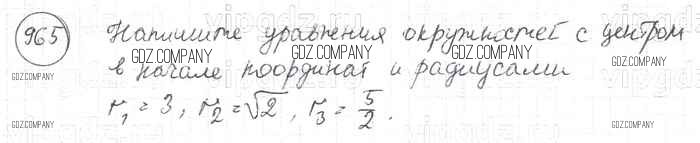 965 Напишите уравнения окружностей с центром
в начале координат и радиусами
r₁ = 3, r₂ = √2, r₃ = 5/2.
GDZ.COMPANY GDZ.COMPANY GDZ.COMPANY
GDZ.COMPANY GDZ.COMPANY GDZ.COMPANY GDZ.COMPANY
GDZ.COMPANY GDZ.COMPANY GDZ.COMPANY